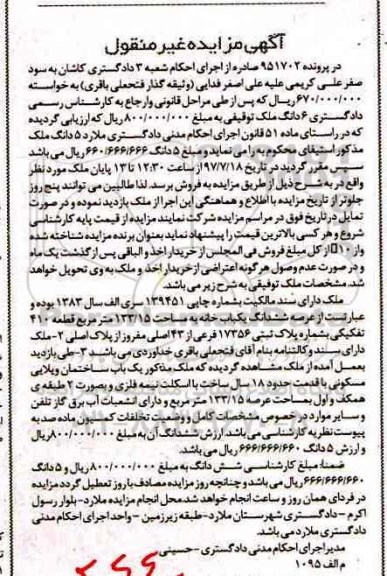 آگهی مزایده غیر منقول
در پرونده ۹۵۱۷۰۲ صادره از اجرای احکام شعبه ۳ دادگستری کاشان به سود
صفر علی کریمی علیه علی اصغر فدایی (وثیقه گذار فتحعلی باقری) به خواسته
۶۷۰/۰۰۰/۰۰۰ ریال که پس از طی مراحل قانونی وارجاع به کارشناس رسمی
دادگستری ۶ دانگ ملک توقیفی به مبلغ ۸۰۰/۰۰۰/۰۰۰ ریال که ارزیابی گردیده
که در راستای ماده ۵۱ قانون اجرای احکام مدنی دادگستری ملارد ۵ دانگ ملک
مذکور استیفای محکوم به را می نماید و مبلغ ۵ دانگ ۶۶۰/۶۶۶/۶۶۶ ریال می باشد
سپس مقرر گردید در تاریخ ۹۷/۷/۱۸ از ساعت ۱۲:۳۰ تا ۱۳ پایان ملک مورد نظر
واقع در به شرح ذیل از طریق مزایده به فروش برسد. لذا طالبین می توانند پنج روز
جلوتر از تاریخ مزایده با اطلاع و هماهنگی این اجرا از ملک بازدید نموده و در صورت
تمایل در تاریخ فوق در مراسم مزایده شرکت نمایند مزایده از قیمت پایه کارشناسی
شروع و هر کسی بالاترین قیمت را پیشنهاد نماید بعنوان برنده مزایده شناخته شده
و از ۱۰ از کل مبلغ فروش فی المجلس از خریدار اخذ و الباقی پس از گذشت یک ماه
و در صورت عدم وصول هر گونه اعتراضی از خریدار اخذ و ملک به وی تحویل خواهد
شد. مشخصات ملک توقیفی به شرح زیر می باشد.
ملک دارای سند مالکیت بشماره چاپی ۱۳۹۴۵۱ سری الف سال ۱۳۸۳ بوده و
عبارت است از عرصه ششدانگ یکباب خانه به مساحت ۱۳۳/۱۵ متر مربع قطعه ۴۱۰
تفکیکی بشماره پلاک ثبتی ۱۷۳۵۶ فرعی از ۴۳ اصلی مفروز از پلاک اصلی ۲-ملک
دارای سند وکالتنامه بنام آقای فتحعلی باقری خداوردی می باشد ۳-طی بازدید
بعمل آمده از ملک مشاهده گردید که ملک مذکور یک باب ساختمان ویلایی
مسکونی با قدمت حدود ۱۸ سال ساخت با اسکلت نیمه فلزی و بصورت ۲ طبقه ی
همکف و اول بمساحت عرصه ۱۳۳/۱۵ متر مربع و دارای انشعابات آب برق گاز تلفن
و سایر موارد در خصوص مشخصات کامل و وضعیت تخلفات کمسیون ماده صد به
پیوست نظریه کارشناسی می باشد. ارزش ششدانگ آن به مبلغ ۸۰۰/۰۰۰/۰۰۰ ریال
و ارزش ۵ دانگ ۶۶۶/۶۶۶/۶۶۰ ریال می باشد.
ضمنا مبلغ کارشناسی شش دانگ به مبلغ ۸۰۰/۰۰۰/۰۰۰ ریال و ۵ دانگ
۶۶۶/۶۶۶/۶۶۰ ریال می باشد و چنانچه روز مزایده مصادف با روز تعطیل گردد مزایده
در فردای همان روز و ساعت انجام خواهد شد. محل انجام مزایده ملارد-بلوار رسول
اکرم - دادگستری شهرستان ملارد-طبقه زیرزمین - واحد اجرای احکام مدنی
دادگستری ملارد می باشد.
مدیر اجرای احکام مدنی دادگستری - حسینی
م الف ۱۰۹۵